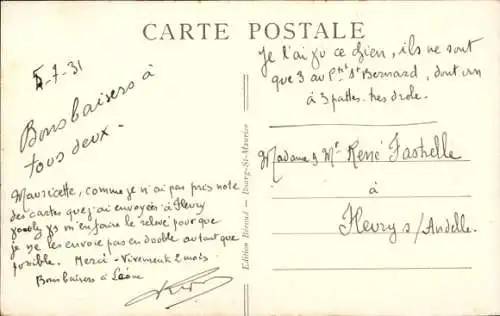 CARTE POSTALE
5-7-31
Bons baisers à
tous deux.
Mauricette, comme je n'ai pas pris note
des cartes que j'ai envoyées à Fleury
m'en faire le relevé pour que
je ne les envoie pas en double autant que
possible. Merci - Vivement 2 mois.
Bons baisers à Léone
Edition Béraud — Bourg-St-Maurice
Je l'ai vu ce chien, ils ne sont
que 3 au Pt St Bernard, dont un
à 3 pattes très drole.
Madame & Mr René Fashelle
à
Fleury s/Andelle